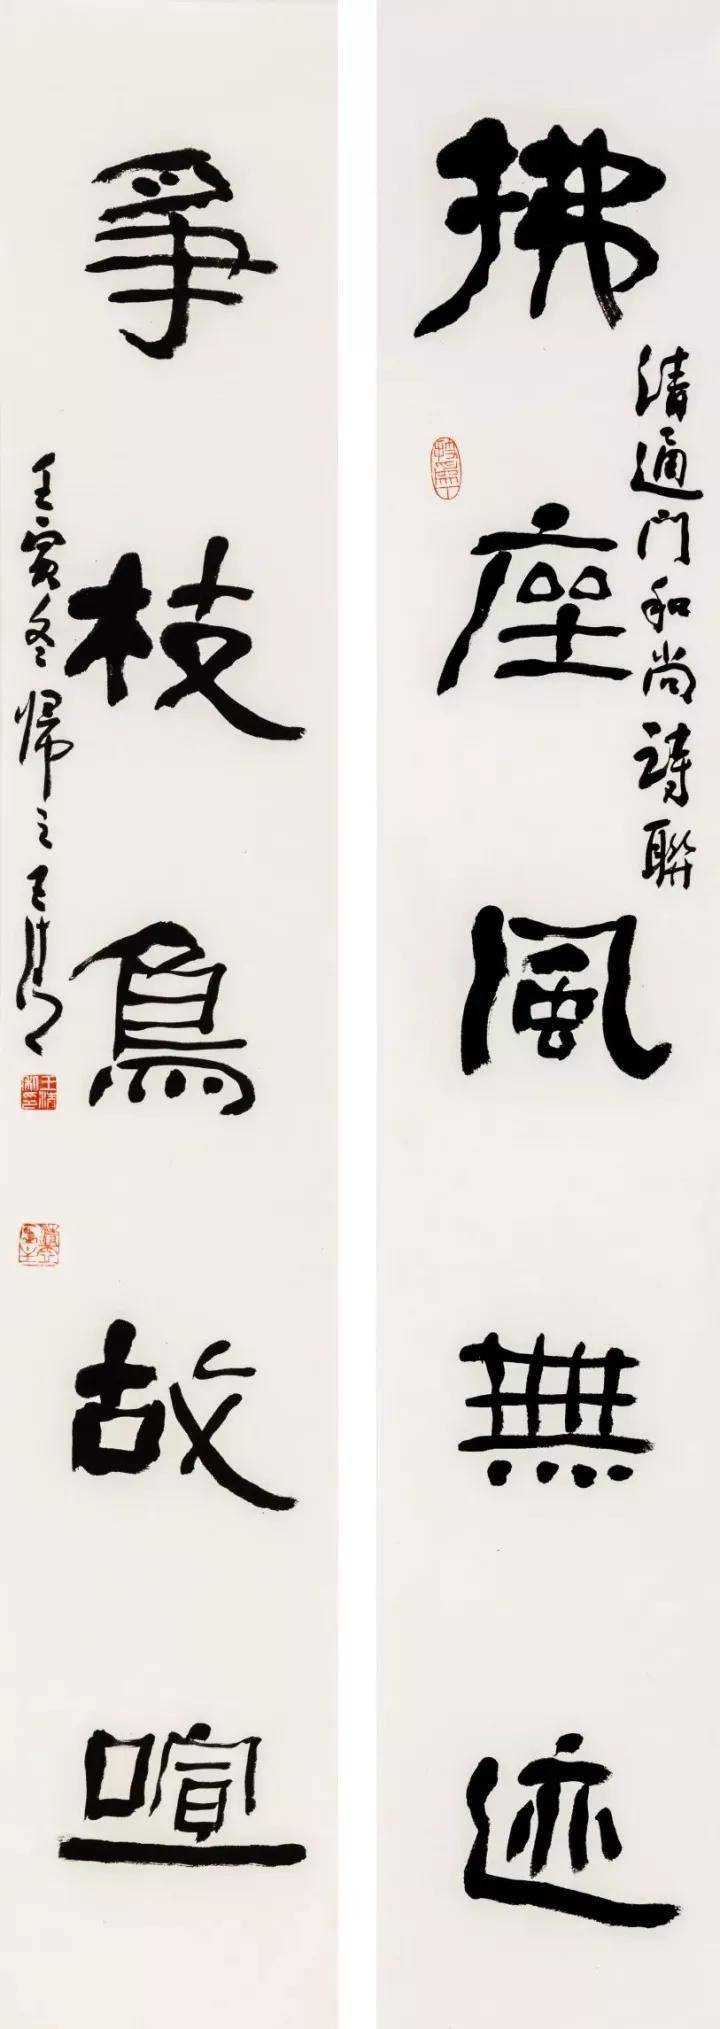 拂座風無迹
清通門和尚詩聯
爭枝鳥故喧
壬寅冬帰之王清